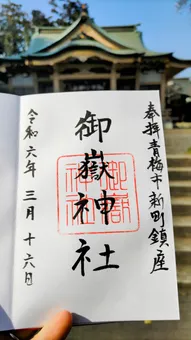 奉拝 青梅市新町鎮座
御嶽神社
御嶽神社
令和六年三月十六日